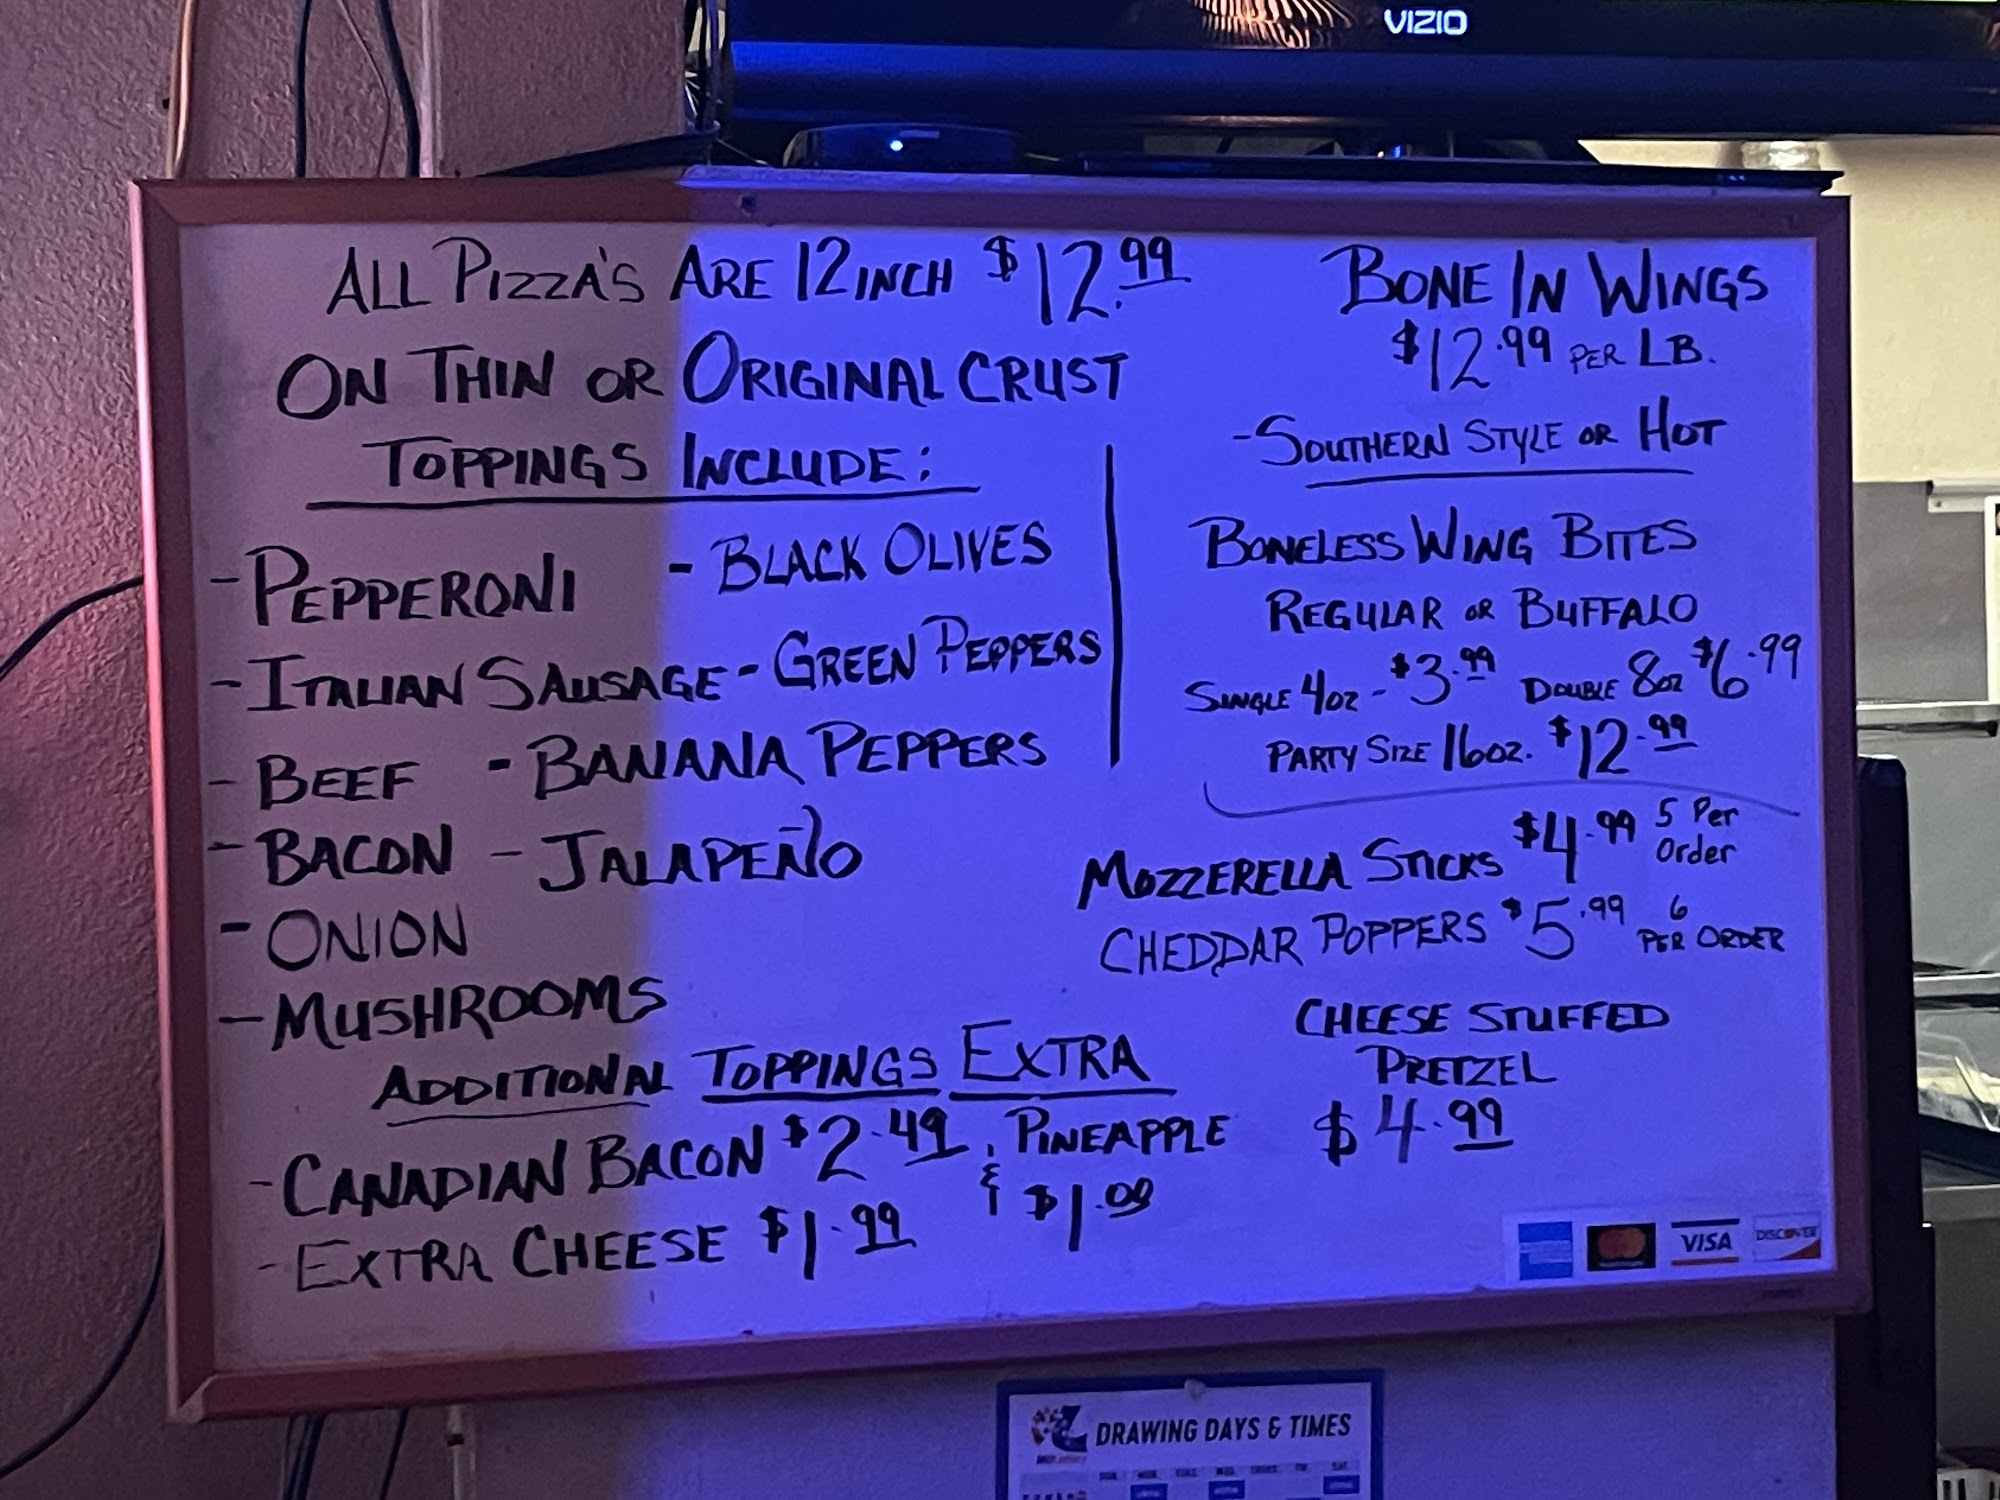 VIZIO
ALL PIZZA'S ARE 12 INCH $12.99
ON THIN OR ORIGINAL CRUST
TOPPINGS INCLUDE:
- PEPPERONI
- BLACK OLIVES
- ITALIAN SAUSAGE
- GREEN PEPPERS
- BEEF
- BANANA PEPPERS
- BACON
- JALAPEÑO
- ONION
- MUSHROOMS
ADDITIONAL TOPPINGS EXTRA
- CANADIAN BACON $2.49, PINEAPPLE
& $1.09
- EXTRA CHEESE $1.99
BONE IN WINGS
$12.99 PER LB.
- SOUTHERN STYLE OR HOT
BONELESS WING BITES
REGULAR OR BUFFALO
SINGLE 4OZ - $3.99 DOUBLE 8OZ $6.99
PARTY SIZE 16OZ. $12.99
MOZZERELLA STICKS $4.99 5 Per Order
CHEDDAR POPPERS $5.99 6 PER ORDER
CHEESE STUFFED
PRETZEL
$4.99
VISA
DISCOVER
DRAWING DAYS & TIMES